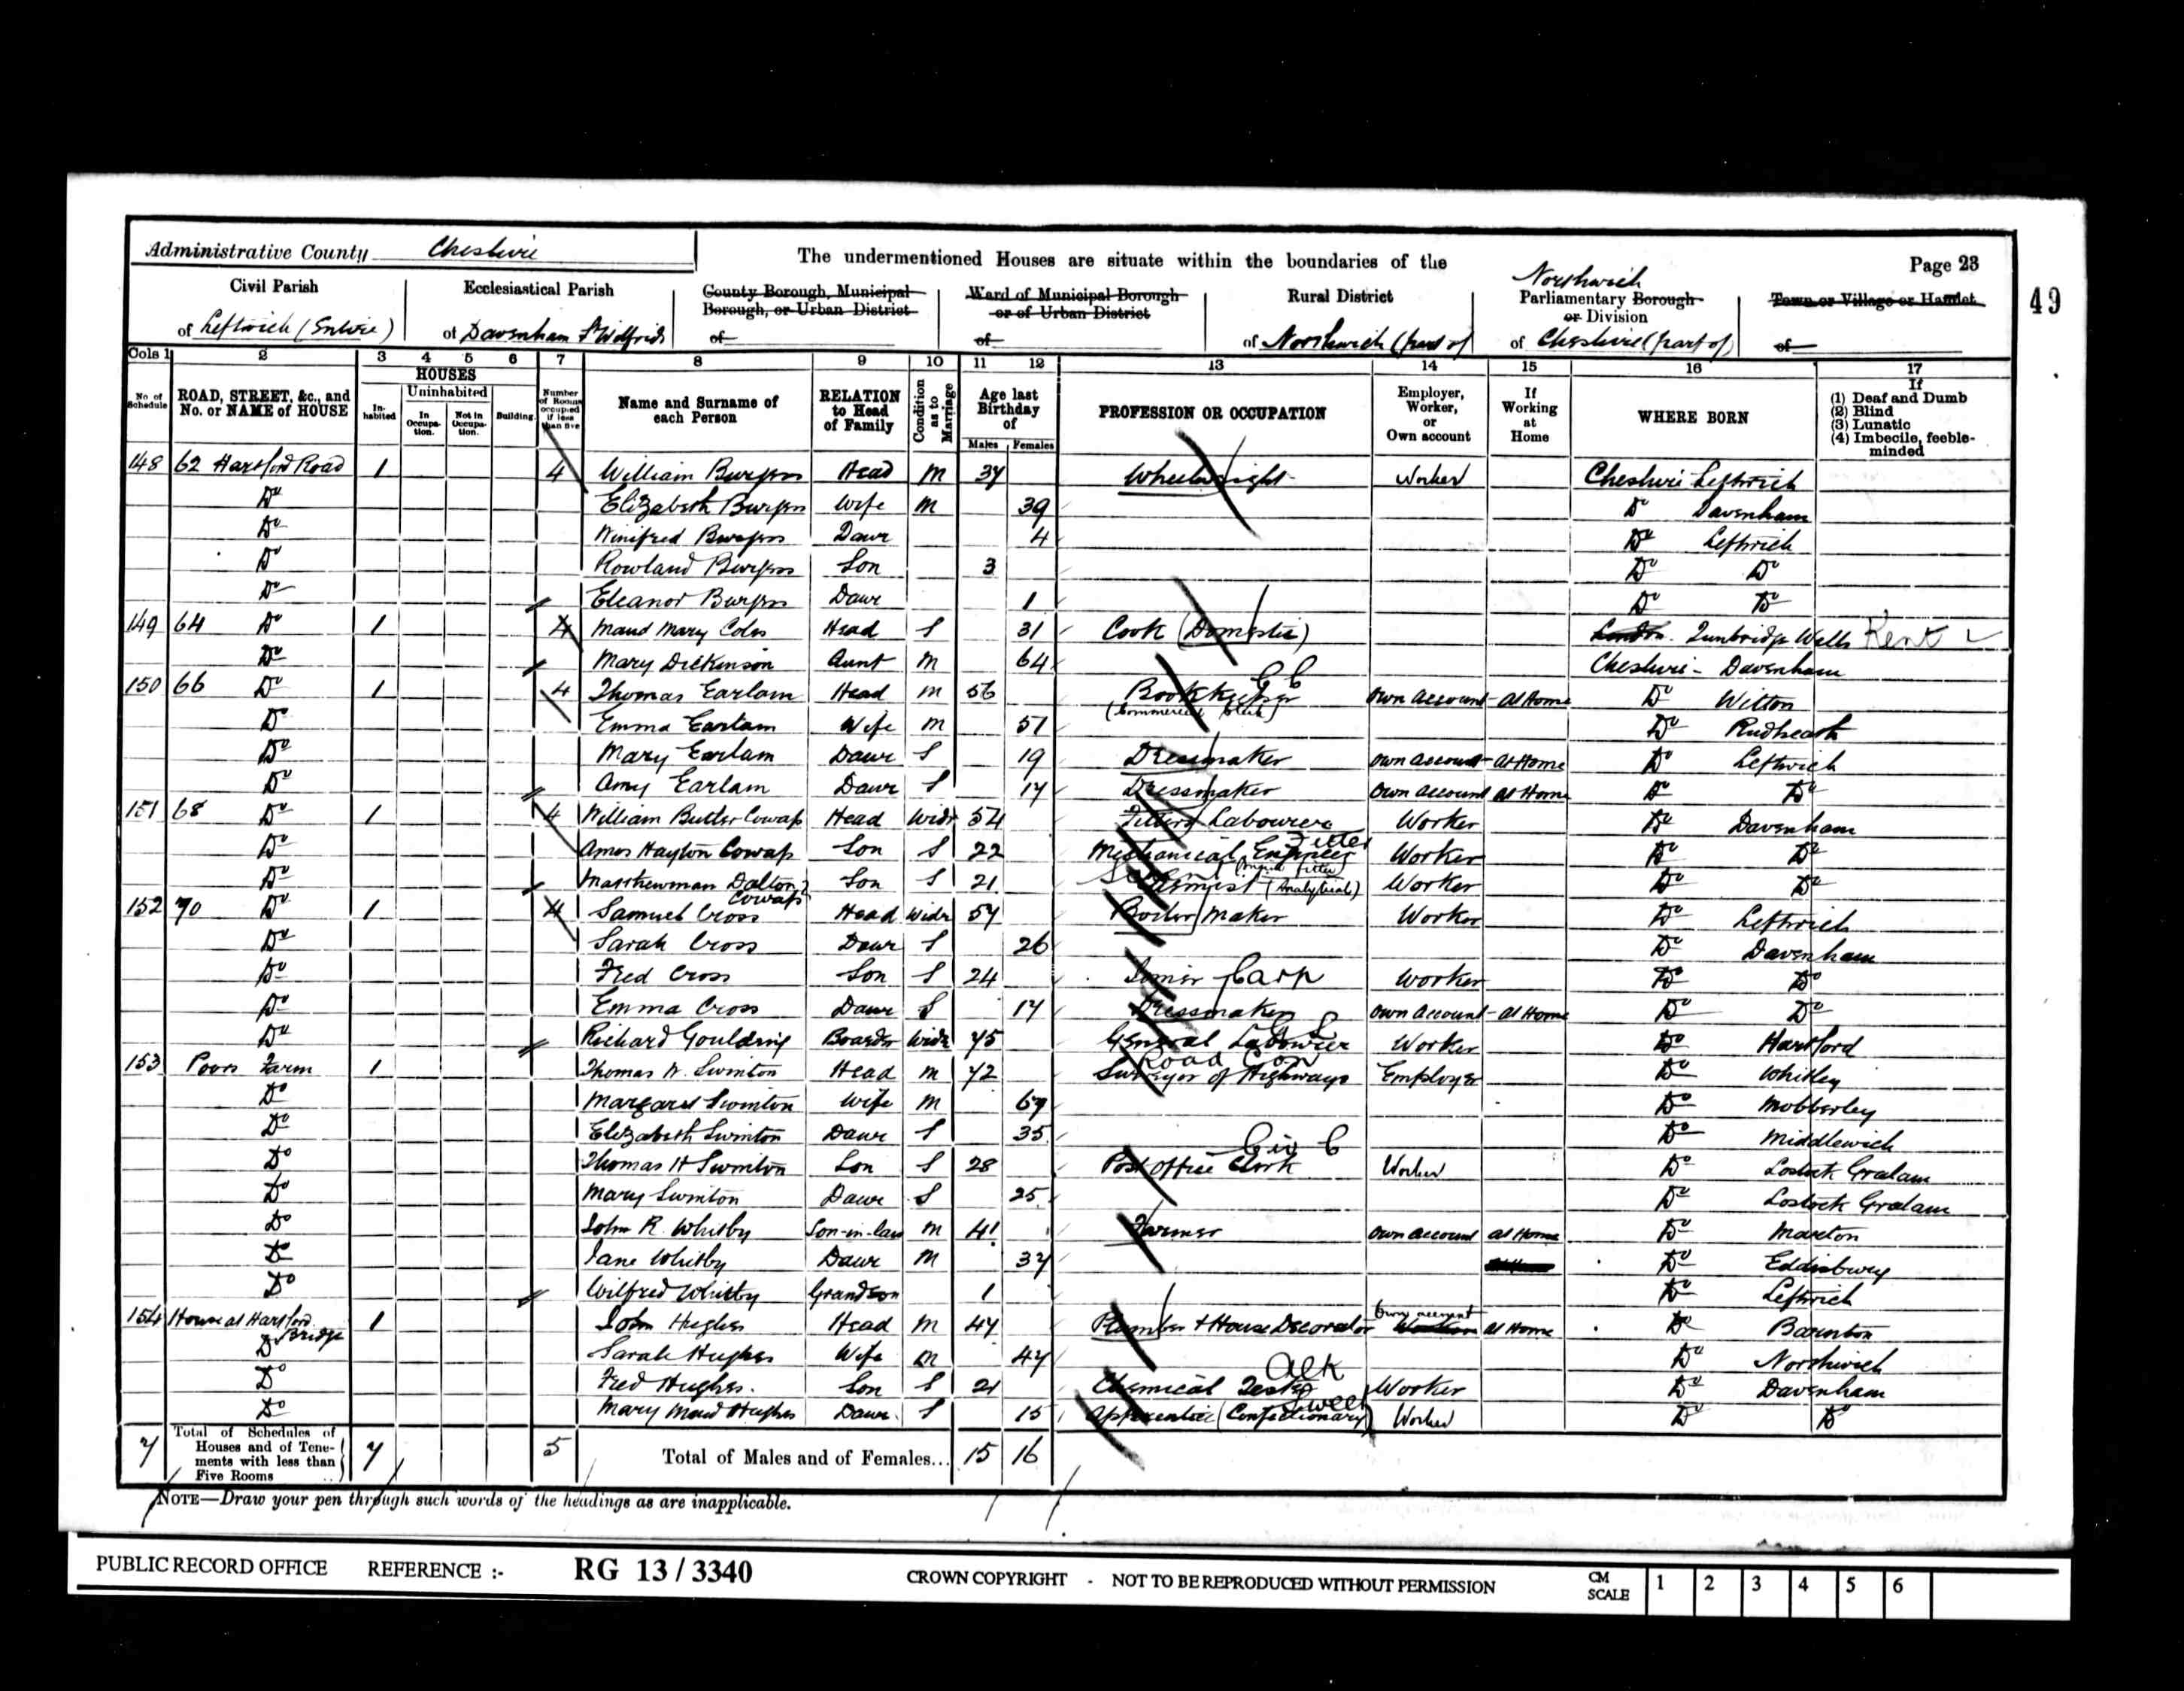 Administrative County Cheshire
The undermentioned Houses are situate within the boundaries of the
Page 23
49
Civil Parish of Leftwich (Entire)
Ecclesiastical Parish of Davenham St Wilfrids
County Borough, Municipal Borough, or Urban District of
Ward of Municipal Borough or of Urban District of
Rural District of Northwich (part of
Northwich Parliamentary Borough or Division of Cheshire (part of)
Town or Village or Hamlet of
Cols 1 2 3 4 5 6 7 8 9 10 11 12 13 14 15 16 17
No of Schedule
ROAD, STREET, &c., and No. or NAME of HOUSE
HOUSES
Inhabited
Uninhabited
In Occupation.
Not in Occupation.
Building.
Number of Rooms occupied if less than five
Name and Surname of each Person
RELATION to Head of Family
Condition as to Marriage
Age last Birthday of
Males Females
PROFESSION OR OCCUPATION
Employer, Worker, or Own account
If Working at Home
WHERE BORN
If
(1) Deaf and Dumb
(2) Blind
(3) Lunatic
(4) Imbecile, feeble-minded
148 62 Hartford Road 1 4 William Burgess Head M 37 Wheelwright Worker Cheshire Leftwich
Do Elizabeth Burgess Wife M 39 Do Davenham
Do Winifred Burgess Daur 4 Do Leftwich
Do Rowland Burgess Son 3 Do Do
Do Eleanor Burgess Daur 1 Do Do
149 64 Do 1 4 Maud Mary Coles Head S 31 Cook (Domestic) London. Tunbridge Wells Kent
Do Mary Dickinson Aunt M 64 Cheshire - Davenham
150 66 Do 1 4 Thomas Earlam Head M 56 Bookkeeper CC (Commercial Clerk) Own Account - At Home Do Witton
Do Emma Earlam Wife M 51 Do Rudheath
Do Mary Earlam Daur S 19 Dressmaker Own Account - At Home Do Leftwich
Do Amy Earlam Daur S 17 Dressmaker Own Account At Home Do Do
151 68 Do 1 4 William Butler Cowap Head Widr 54 Fitters Labourer Worker Do Davenham
Do Amos Hayton Cowap Son S 22 Mechanical Engineer Fitter (Engine Fitter) Worker Do Do
Do Matthewman Dalton Cowap Son S 21 Chemist (Analytical) Worker Do Do
152 70 Do 1 4 Samuel Cross Head Widr 57 Boiler Maker Worker Do Leftwich
Do Sarah Cross Daur S 26 Do Davenham
Do Fred Cross Son S 24 Joiner Carp Worker Do Do
Do Emma Cross Daur S 17 Dressmaker Own Account - At Home Do Do
Do Richard Goulding Boarder Widr 45 General Labourer G L Worker Do Hartford
153 Poors Farm 1 Thomas W. Swinton Head M 72 Surveyor of Highways Road Con Employer Do Whitley
Do Margaret Swinton Wife M 67 Do Mobberley
Do Elizabeth Swinton Daur S 35 Do Middlewich
Do Thomas H Swinton Son S 28 Post Office Clerk Civ C Worker Do Lostock Gralam
Do Mary Swinton Daur S 25 Do Lostock Gralam
Do John R. Whitby Son-in-law M 41 Farmer Own Account At Home Do Marston
Do Jane Whitby Daur M 37 Do Eddisbury
Do Wilfred Whitby Grandson 1 Do Leftwich
154 House at Hartford Bridge 1 John Hughes Head M 47 Plumber + House Decorator Own account At Home Do Barnton
Do Sarah Hughes Wife M 47 Do Northwich
Do Fred Hughes. Son S 21 Chemical Tester Alk Worker Do Davenham
Do Mary Maud Hughes Daur. S 15 Apprentice (Confectionary) Sweet Worker Do Do
7 Total of Schedules of Houses and of Tenements with less than Five Rooms 7 5 Total of Males and of Females... 15 16
NOTE—Draw your pen through such words of the headings as are inapplicable.
PUBLIC RECORD OFFICE REFERENCE :- RG 13 / 3340 CROWN COPYRIGHT - NOT TO BE REPRODUCED WITHOUT PERMISSION CM SCALE 1 2 3 4 5 6